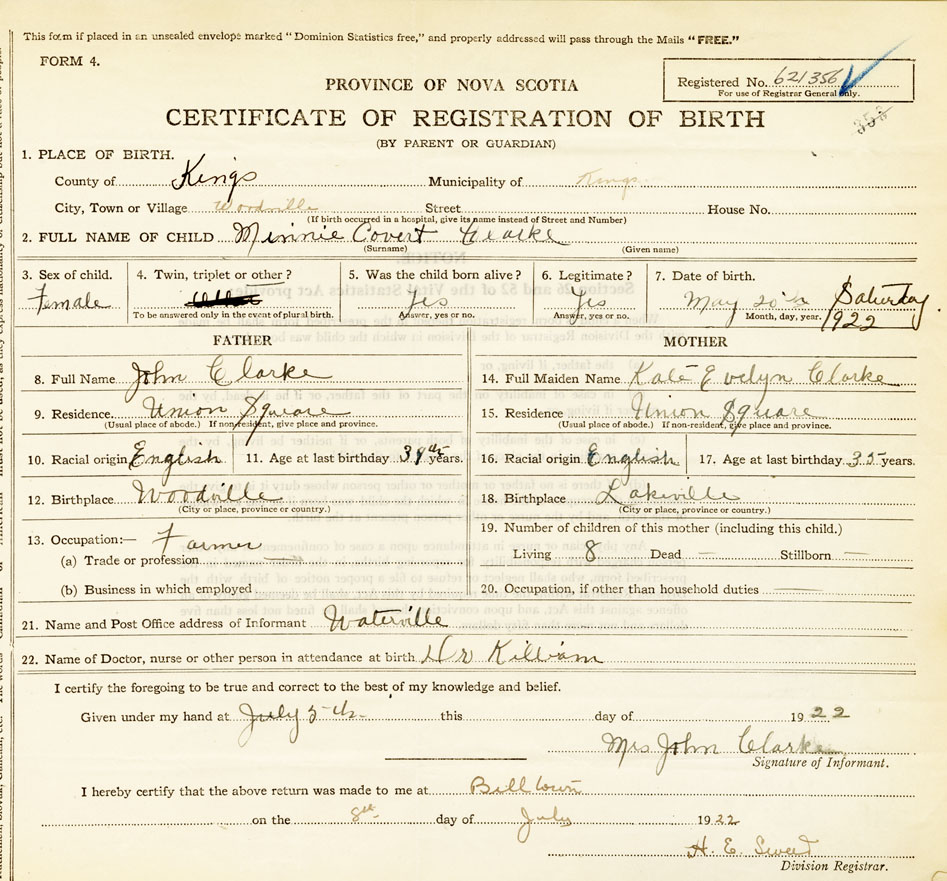 This form if placed in an unsealed envelope marked "Dominion Statistics free," and properly addressed will pass through the Mails "FREE."
FORM 4.
Registered No. 621356
For use of Registrar General only.
358
PROVINCE OF NOVA SCOTIA
CERTIFICATE OF REGISTRATION OF BIRTH
(BY PARENT OR GUARDIAN)
1. PLACE OF BIRTH.
County of Kings Municipality of Kings
City, Town or Village Woodville Street House No.
(If birth occurred in a hospital, give its name instead of Street and Number)
2. FULL NAME OF CHILD Minnie Covert Clarke
(Surname) (Given name)
3. Sex of child. 4. Twin, triplet or other? 5. Was the child born alive? 6. Legitimate? 7. Date of birth.
Female Yes Yes May 20th Saturday 1922
To be answered only in the event of plural birth. Answer, yes or no. Answer, yes or no. Month, day, year.
FATHER
8. Full Name John Clarke
9. Residence. Union Square
(Usual place of abode.) If non-resident, give place and province.
10. Racial origin English 11. Age at last birthday 39 years.
12. Birthplace Woodville
(City or place, province or country.)
13. Occupation:— Farmer
(a) Trade or profession
(b) Business in which employed
MOTHER
14. Full Maiden Name Kate Evelyn Clarke
15. Residence Union Square
(Usual place of abode.) If non-resident, give place and province.
16. Racial origin English 17. Age at last birthday 35 years.
18. Birthplace Lakeville
(City or place, province or country.)
19. Number of children of this mother (including this child.)
Living 8 Dead — Stillborn —
20. Occupation, if other than household duties —
21. Name and Post Office address of Informant Waterville
22. Name of Doctor, nurse or other person in attendance at birth Dr Killam
I certify the foregoing to be true and correct to the best of my knowledge and belief.
Given under my hand at July 5th this day of 1922
Mrs John Clarke
Signature of Informant.
I hereby certify that the above return was made to me at Billtown
on the 8th day of July 1922
H. E. Sweet
Division Registrar.